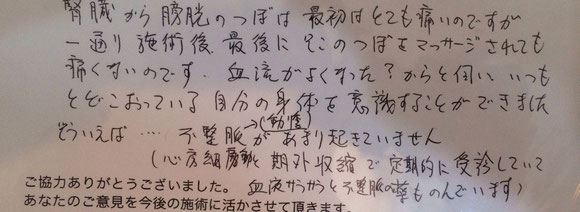 腎臓から膀胱のつぼは最初はとても痛いのですが
一通り施術後、最後にそこのつぼをマッサージされても
痛くないのです。血流がよくなった?からと伺い、いつも
とどこおっている自分の身体を意識することができました
そういえば…‥ 不整脈→(動悸)があまり起きていません
(心房細動と期外収縮で定期的に受診していて
ご協力ありがとうございました。 血液サラサラと不整脈の薬ものんでいます)
あなたのご意見を今後の施術に活かさせて頂きます。